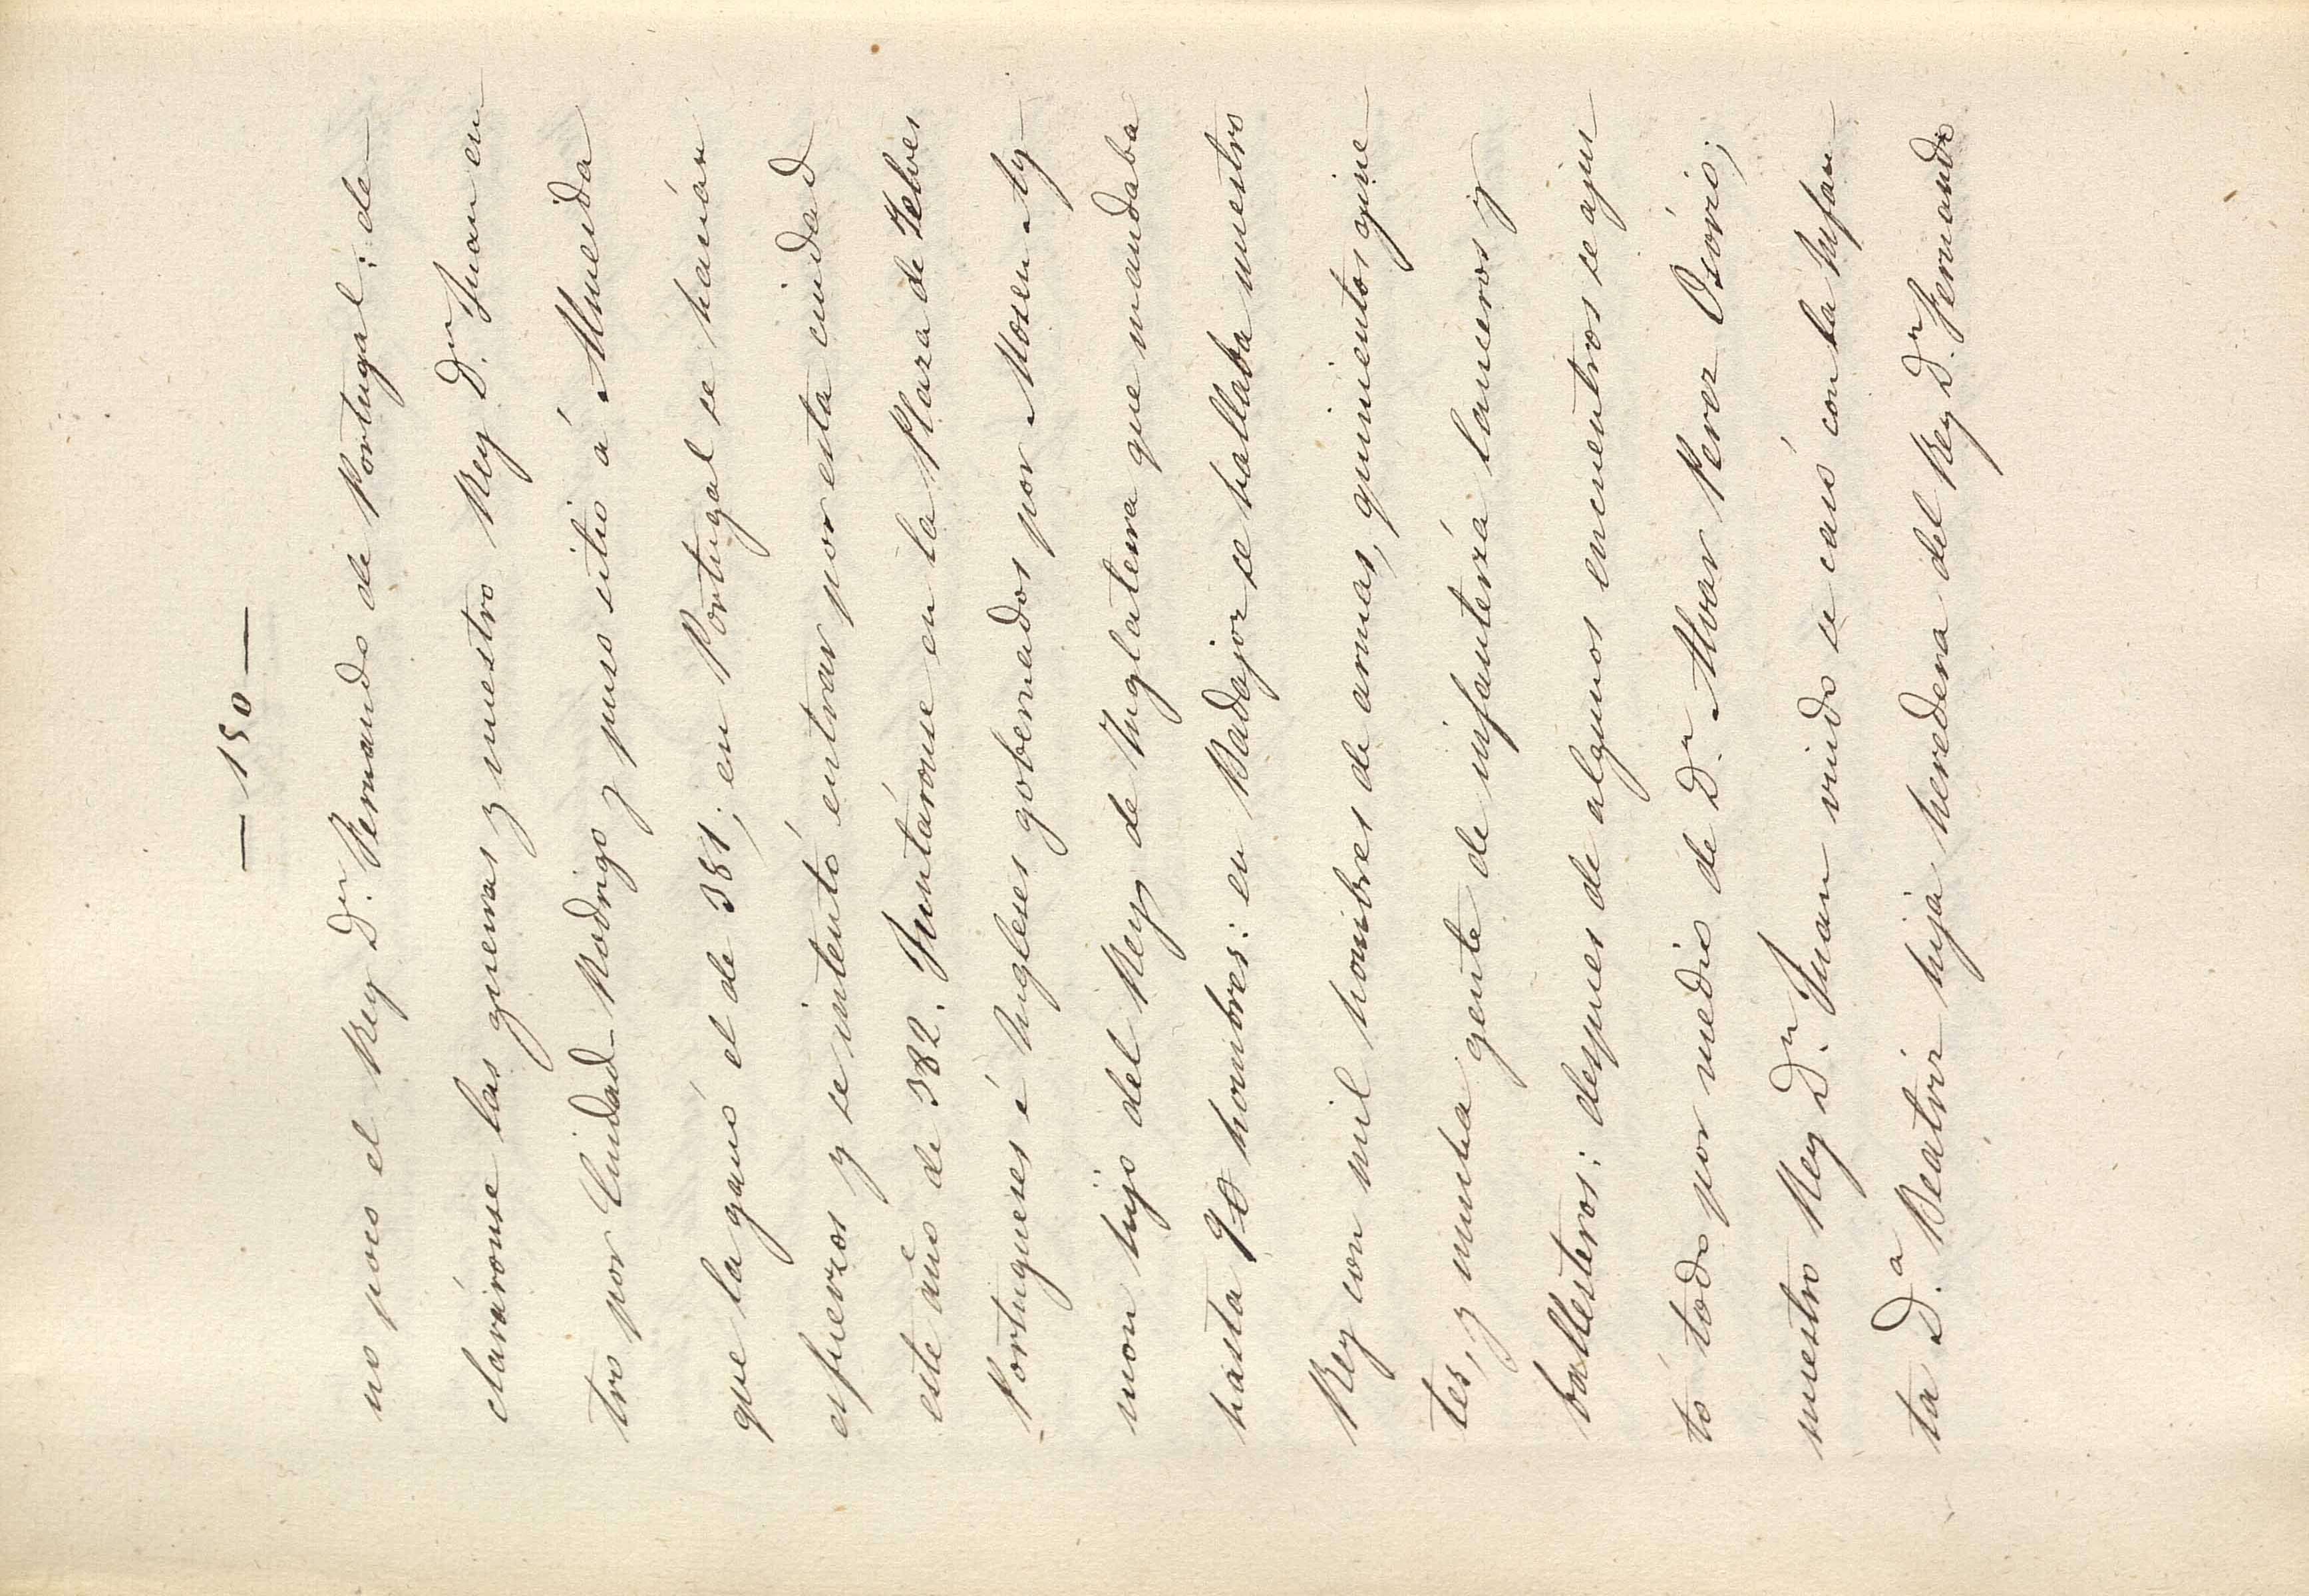 — 150 —
no pues el Rey Dⁿ. Fernando de Portugal: de
claráronse las guerras y nuestro Rey Dⁿ. Juan en
tro por Ciudad-Rodrigo y puso sitio á Almeida
que la ganó el de 381; en Portugal se hacián
esfuerzos y se intentó entrar por esta ciudad
este año de 382. Juntáronse en la Plaza de Yelves
Portugueses é Yngleses gobernados por Mosen Ay-
mon hijo del Rey de Ynglaterra que mandaba
hasta hombres: en Badajoz se hallaba nuestro
Rey con mil hombres de armas, quinientos gine
tes, y mucha gente de infanteriá lanceros y
ballesteros: despues de algunos encuentros se ajus
tó todo por medio de Dⁿ. Alvar Perez Osório;
nuestro Rey Dⁿ. Juan viudo se casó con la Ynfan
ta D.ª Beatriz hija heredera del Rey Dⁿ. Fernando